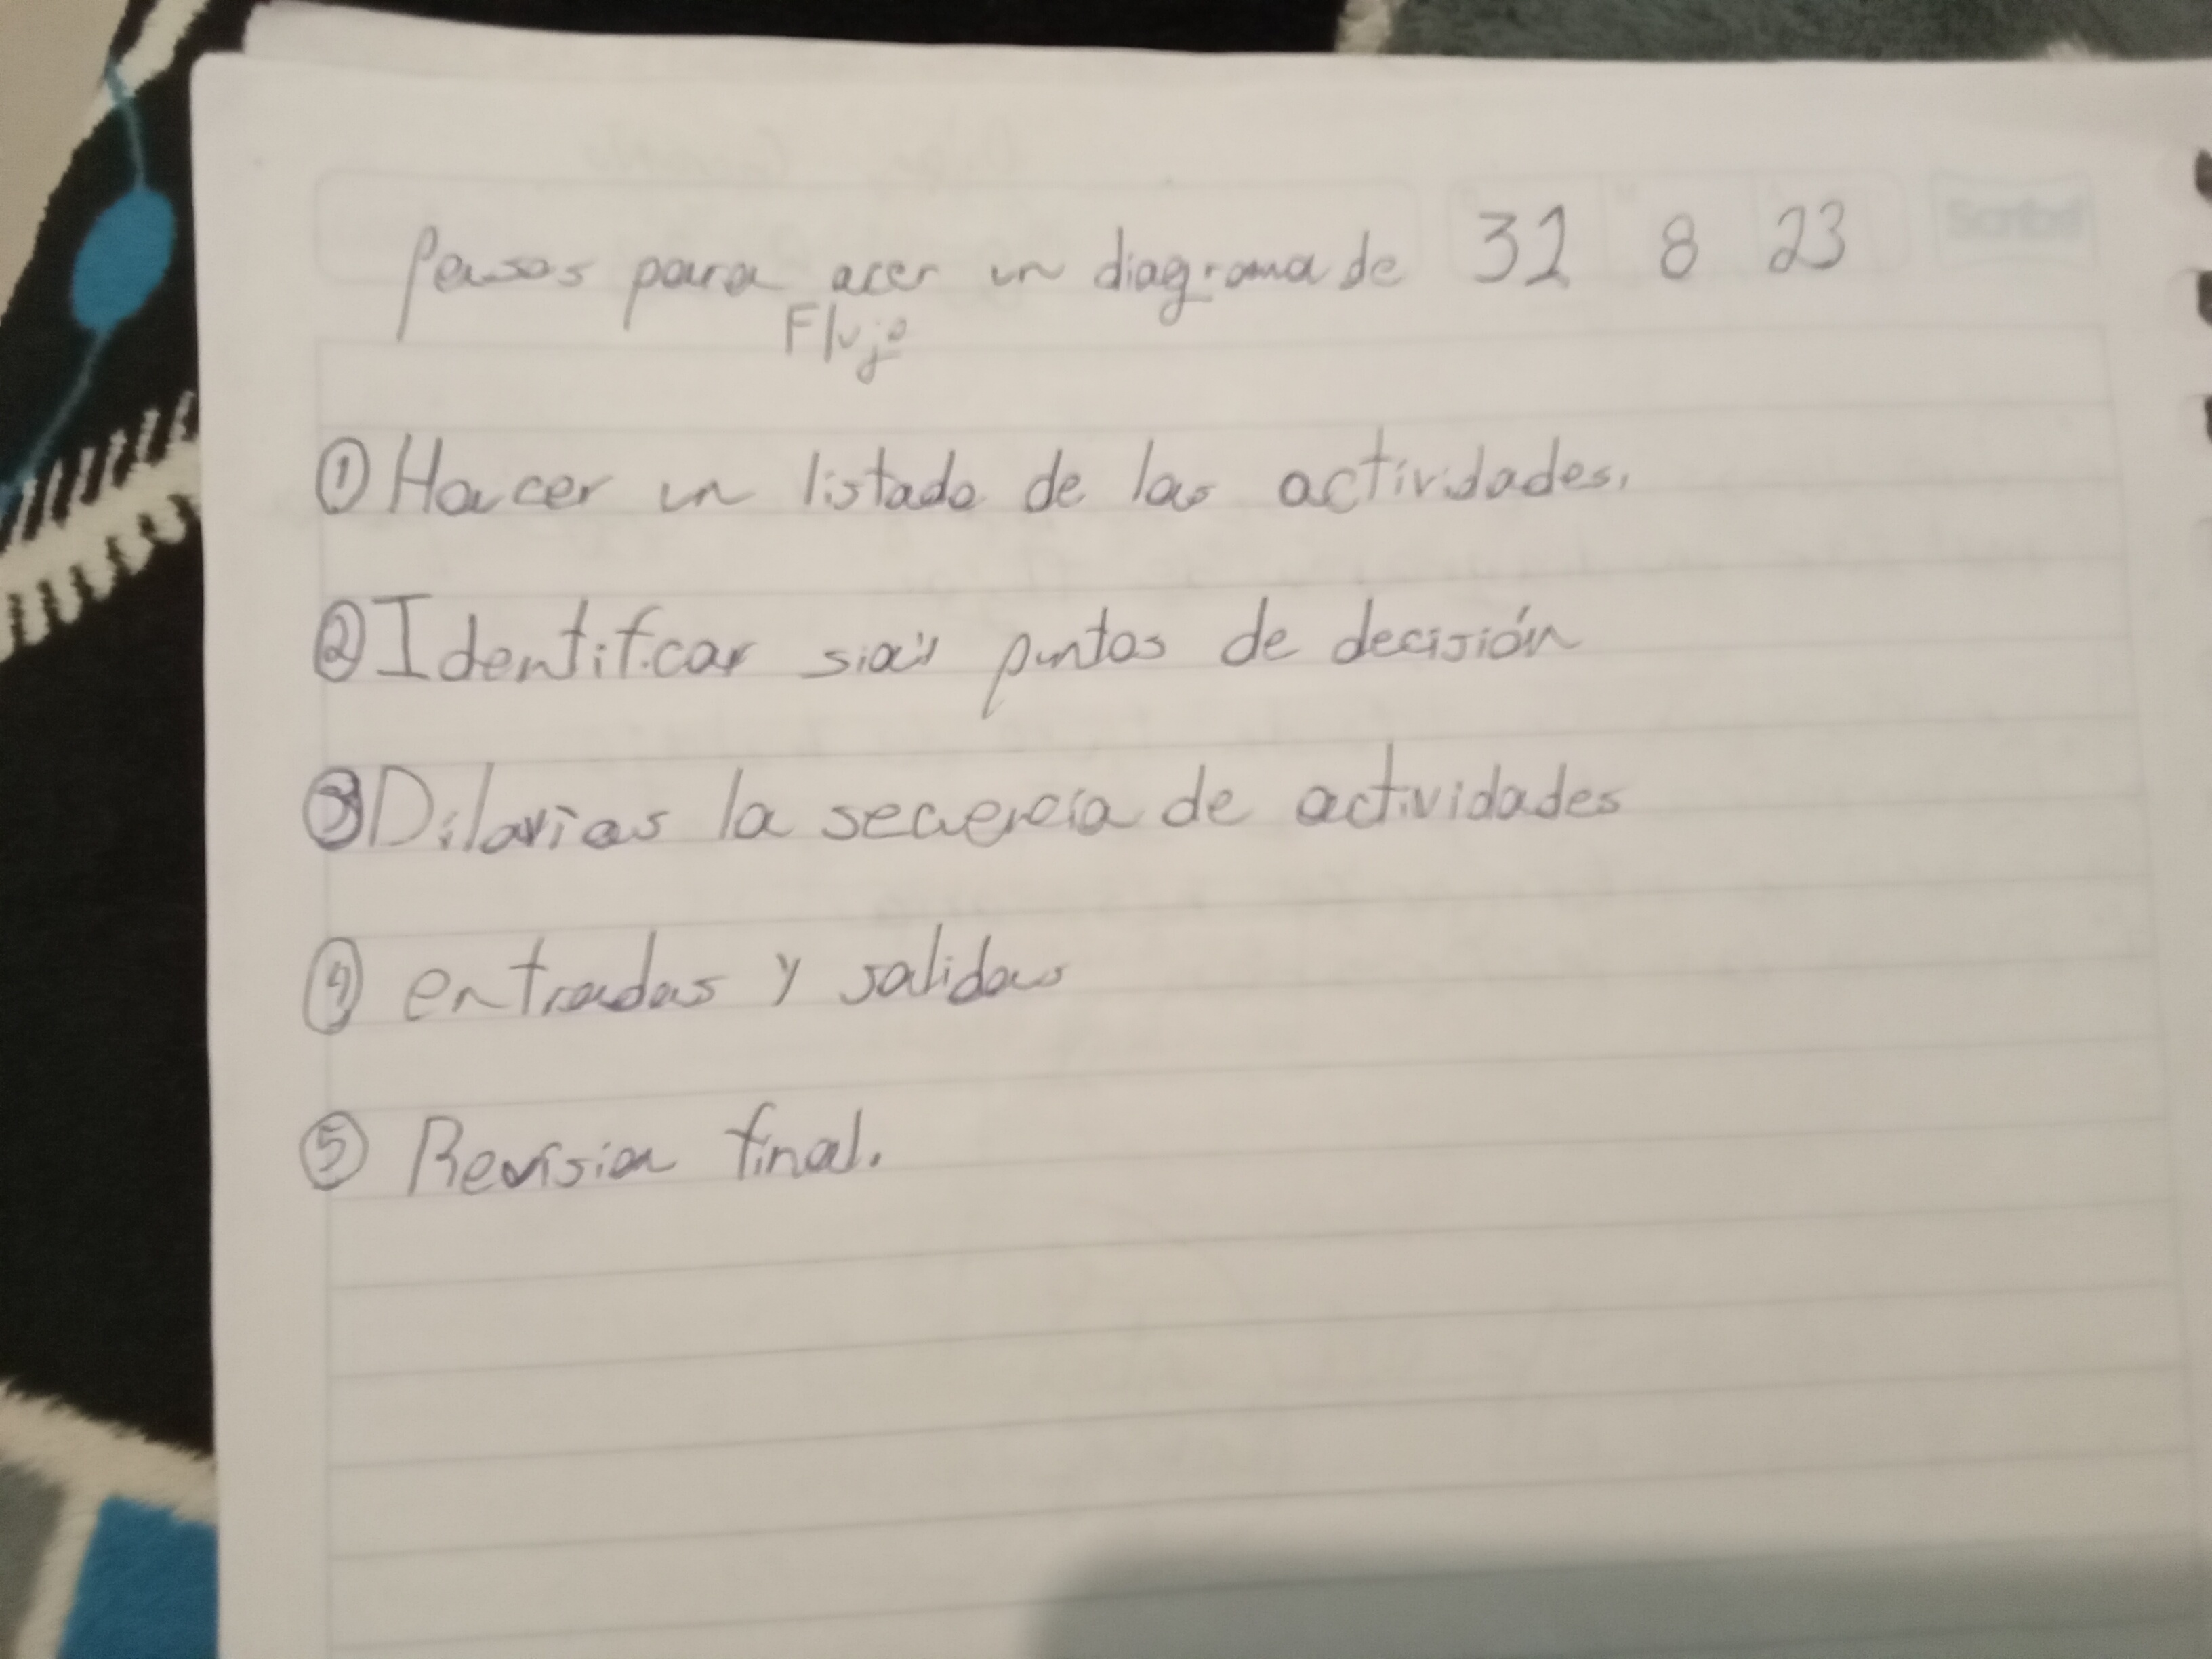 Pasos para acer un diagrama de 31 8 23 Scribe
Flujo
① Hacer un listado de las actividades.
② Identificar puntos de decisión
③ la secuencia de actividades
④ entradas y salidas
⑤ Revision final.